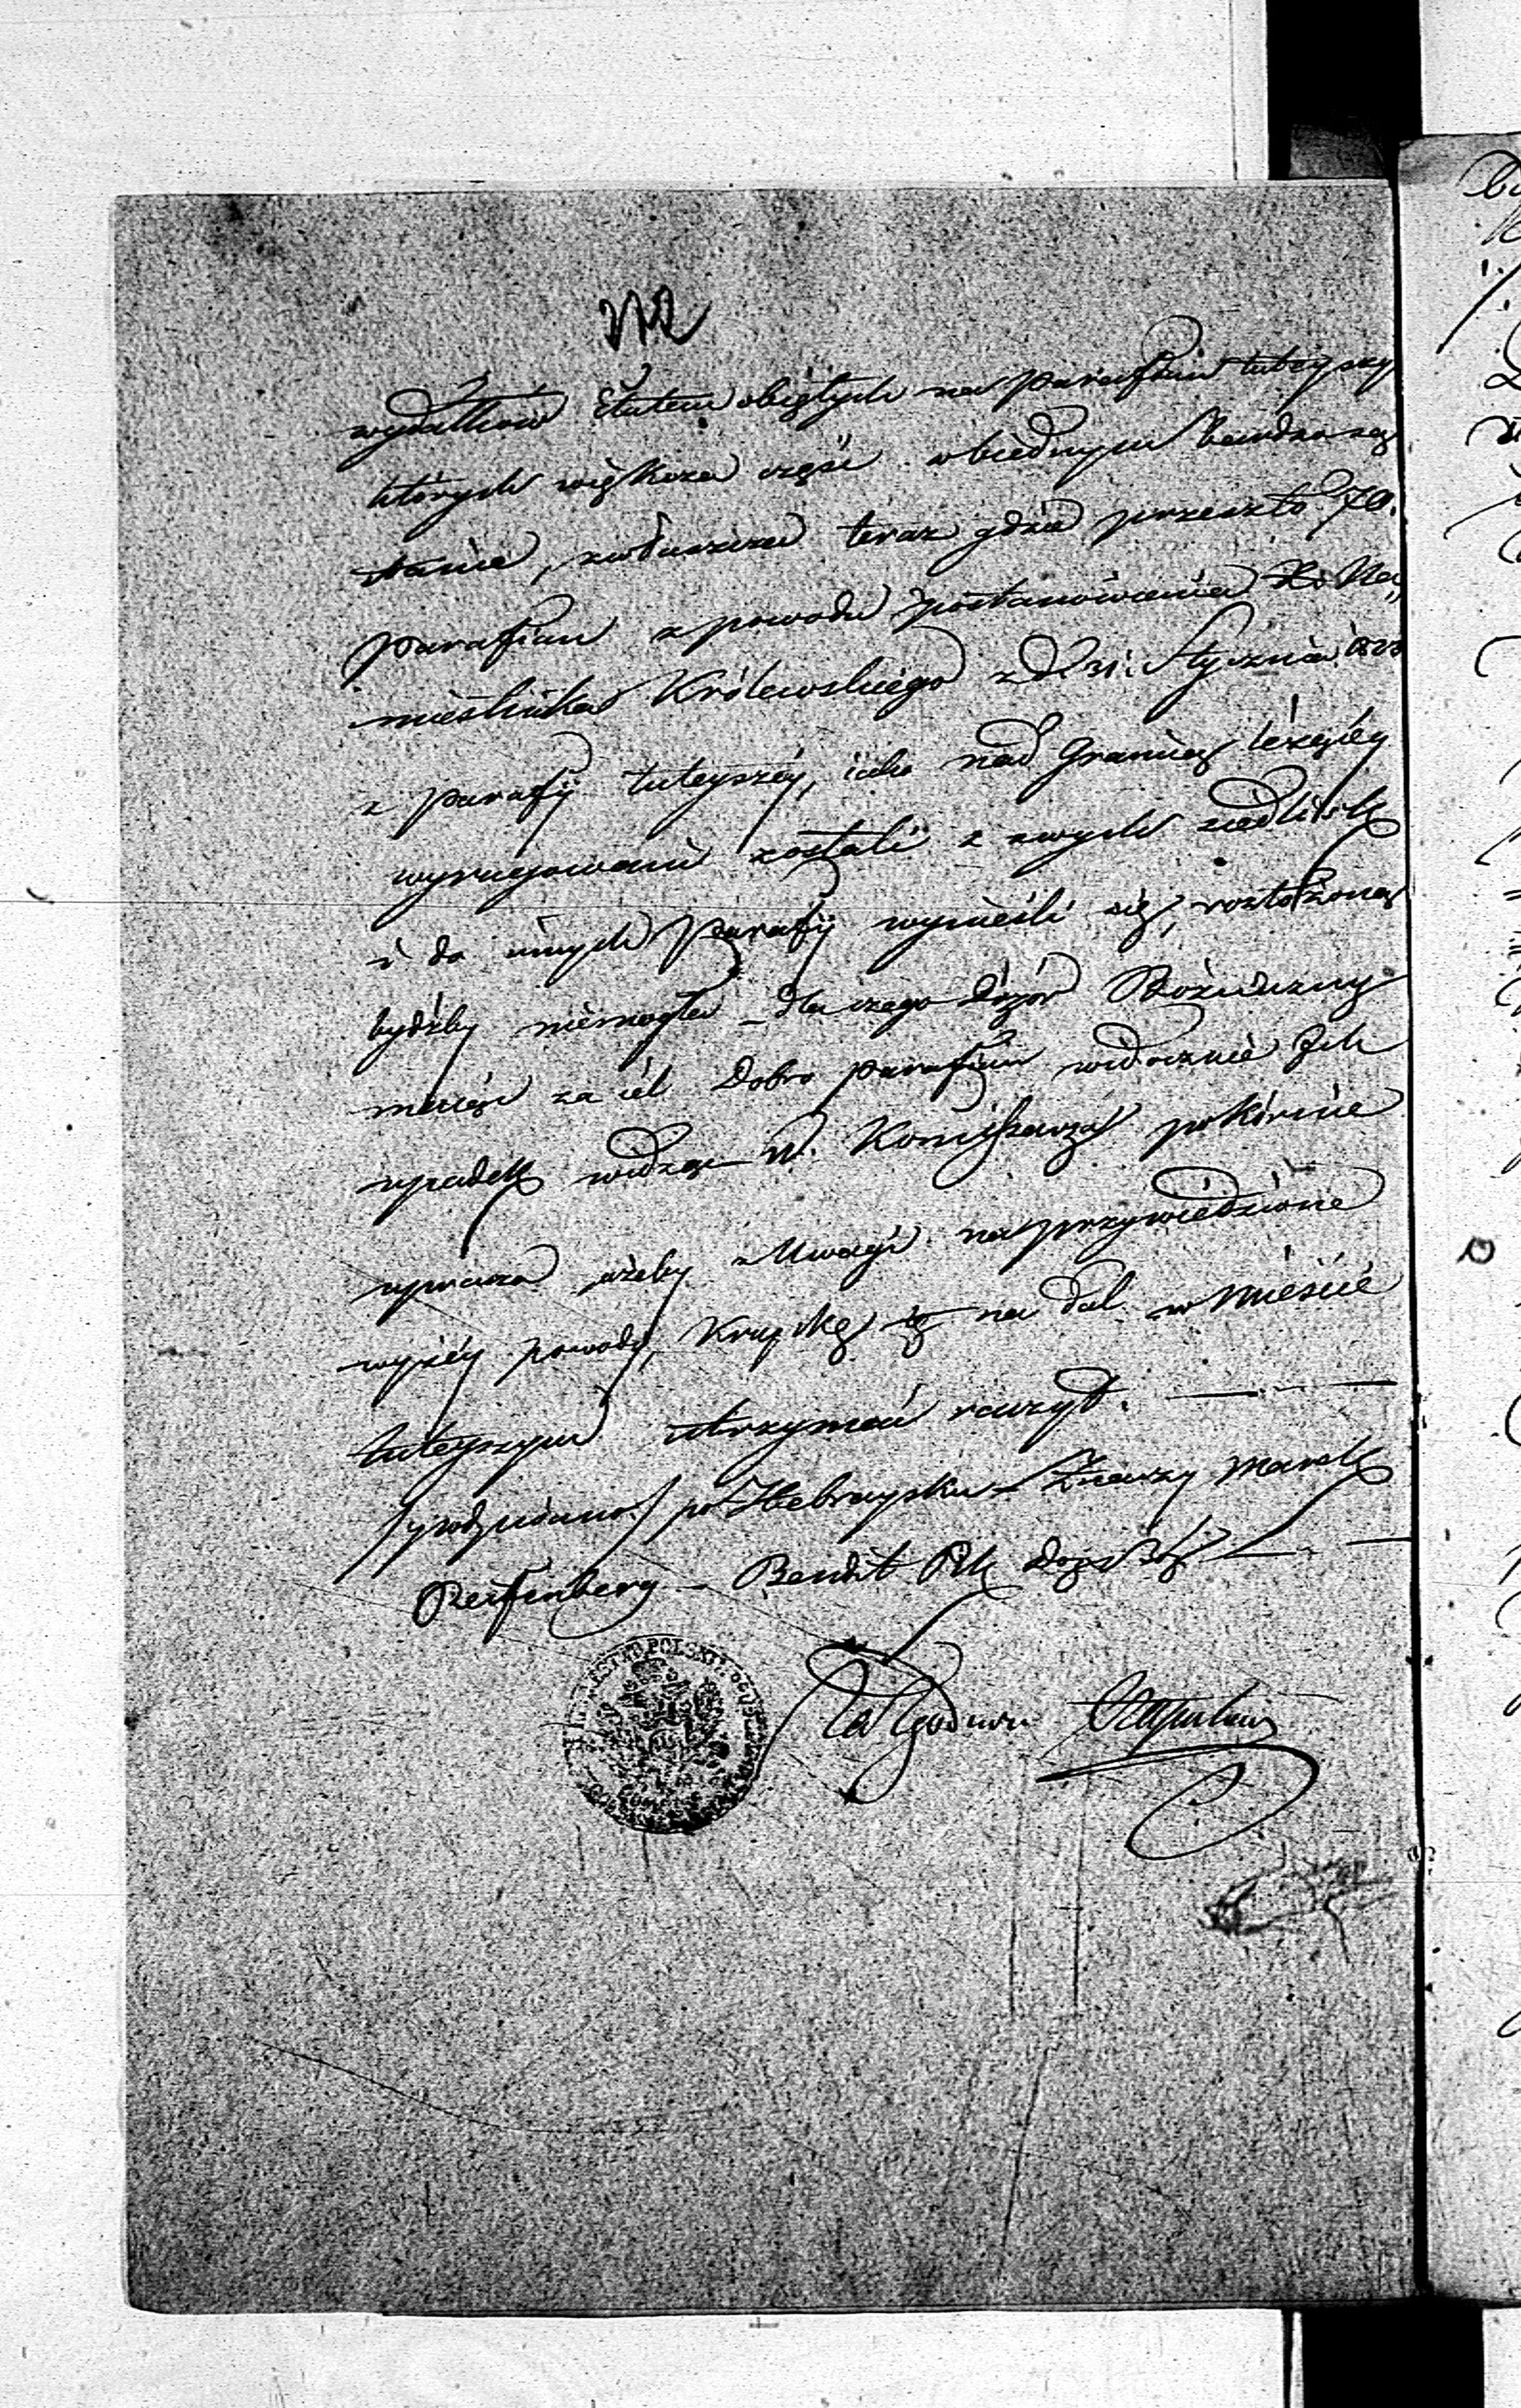 wydatków Etatem obiętych na Parafian tuteyszy
których większa część w biednym bardzo są
stanie, zwłaszcza teraz gdzie przeszło 70.
Parafian z powodu postanowienia Xi Na„
miestnika Królewskiego z d. 31. Stycznia 1823
z Parafij tuteyszéy, iako nad Granicą leżącéy
wyrugowani zostali z swych siedlisk
i do innych Parafij wynieśli się, rozłożoną
bydźby niemogła – dla czego Dozór Bóżniczny
maiąc za cél Dobro Parafian widocznie Ich
upadek widząc W. Kommissarza pokórnie
uprasza ażeby z Uwagi na przywiedzione
wyżéy powody, Krupkę tę na dal w mieście
tuteyszym utrzymać raczył.
/podpisano/ po Hebraysku – Znaczy Marek
Reifenberg – Bendit Pik Dozr Boż
Za Zgodność